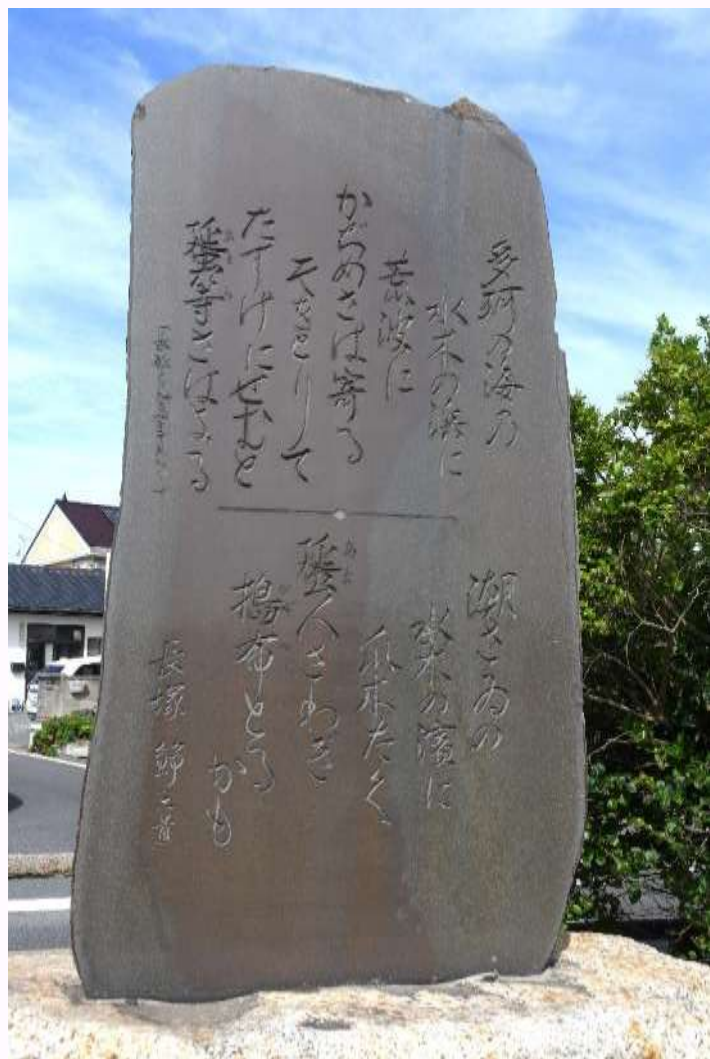 多珂乃海乃
水木の浜に
荒波に
かぢめさは寄る
そをとりして
たすけにせむと
蜑等さは
潮さゐの
水木の濱に
爪木たく
蜑人さわぎ
搗布とる
かも
長塚 節